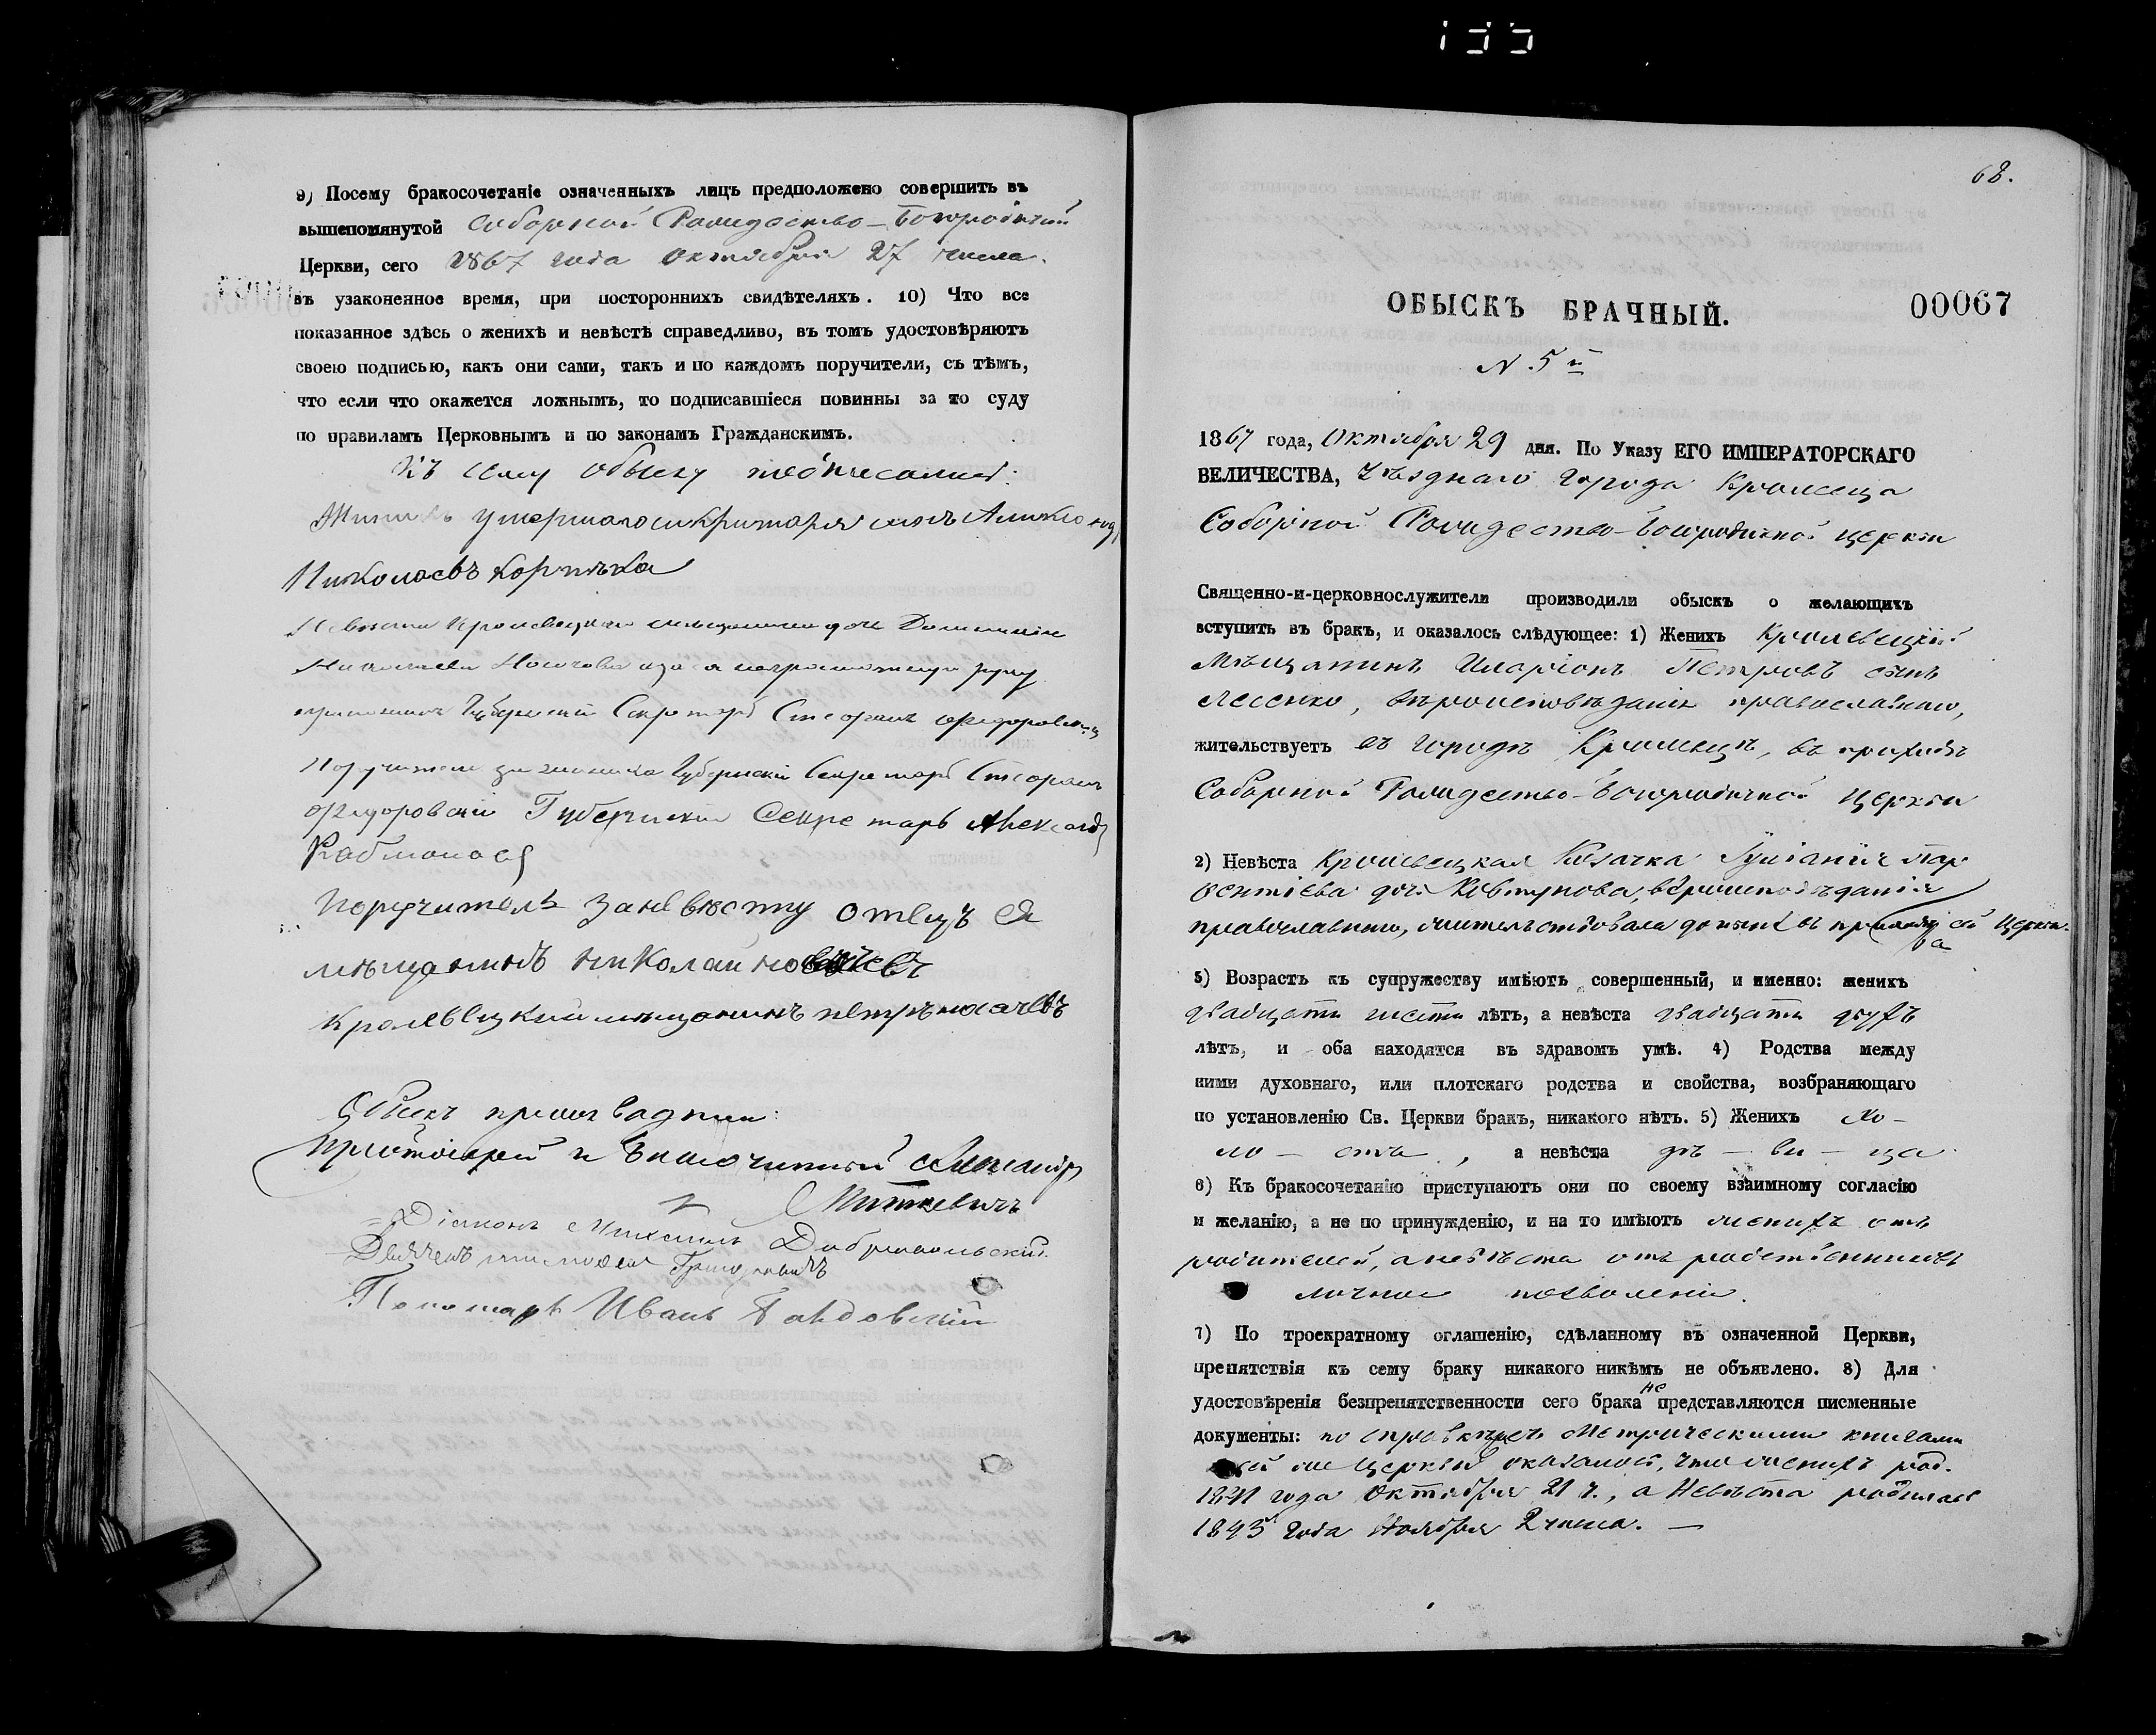 9) Посему бракосочетаніе означенныхъ лицъ предположено совершить въ
вышепомянутой Соборной Рождество-Богородичной
Церкви, сего 1867 года Октября 27 числа.
въ узаконенное время, при постороннихъ свидѣтеляхъ. 10) Что все
показанное здѣсь о женихѣ и невѣстѣ справедливо, въ томъ удостовѣряютъ
своею подписью, какъ они сами, такъ и по каждомъ поручители, съ тѣмъ,
что если что окажется ложнымъ, то подписавшіеся повинны за то суду
по правиламъ Церковнымъ и по законамъ Гражданскимъ.
Къ сему обыску подписались:
умершого сикритаря сынъ
Николаевъ
Невѣста дочь
Николаева руку
Губернскій Секретарь Стефанъ
Поручители за жениха Губернскій Секретарь Стефанъ
Губернскій Секретарь Александръ
Поручитель за невѣсту отецъ ея
мѣщанинъ Николай
Кролевецкий мѣщанинъ петръ носачевъ
Обыскъ производили:
Протоіерей и Благочинный Александръ
Миткевичъ
Діаконъ Михаилъ
Дьячекъ Тимофей Григоровичъ
Пономарь Иванъ
68.
ОБЫСКЪ БРАЧНЫЙ.
00067
N 5й
1867 года, Октября 29 дня. По Указу ЕГО ИМПЕРАТОРСКАГО
ВЕЛИЧЕСТВА, Уѣзднаго города Кролевца
Соборной Рождество-Богородичной церкви
Священно-и-церковнослужители производили обыскъ о желающихъ
вступить въ бракъ, и оказалось слѣдующее: 1) Женихъ Кролевецкій
Мѣщанинъ Иларіонъ Петровъ сынъ
Лесенко, вѣроисповѣданія православнаго,
жительствуетъ въ городѣ Кролевцѣ, въ приходѣ
Соборной Рождество-Богородичной Церкви
2) Невѣста Кролевецкая Козачка Іуліанія Пар
фентіева дочь Ковтунова, вѣроисповѣданія
православнаго, жительствовала донынѣ въ приходѣ сей Церкви.
3) Возрастъ къ супружеству имѣютъ совершенный, и именно: женихъ
двадцати шести лѣтъ, а невѣста двадцати двухъ
лѣтъ, и оба находятся въ здравомъ умѣ. 4) Родства между
ними духовнаго, или плотскаго родства и свойства, возбраняющаго
по установленію Св. Церкви бракъ, никакого нѣтъ. 5) Женихъ хо-
ло-стъ, а невѣста дѣ-ви-ца
6) Къ бракосочетанію приступаютъ они по своему взаимному согласію
и желанію, а не по принужденію, и на то имѣютъ женихъ отъ
родителей, а невѣста отъ родственниковъ
личное позволеніе.
7) По троекратному оглашенію, сдѣланному въ означенной Церкви,
препятствія къ сему браку никакого никѣмъ не объявлено. 8) Для
удостовѣренія безпрепятственности сего брака не представляются писменные
документы: по справкѣ съ Метрическими книгами
сей же Церкви оказалось, что женихъ род.
1841 года Октября 21 ч., а Невѣста родилась
1845 года Ноября 2 числа.